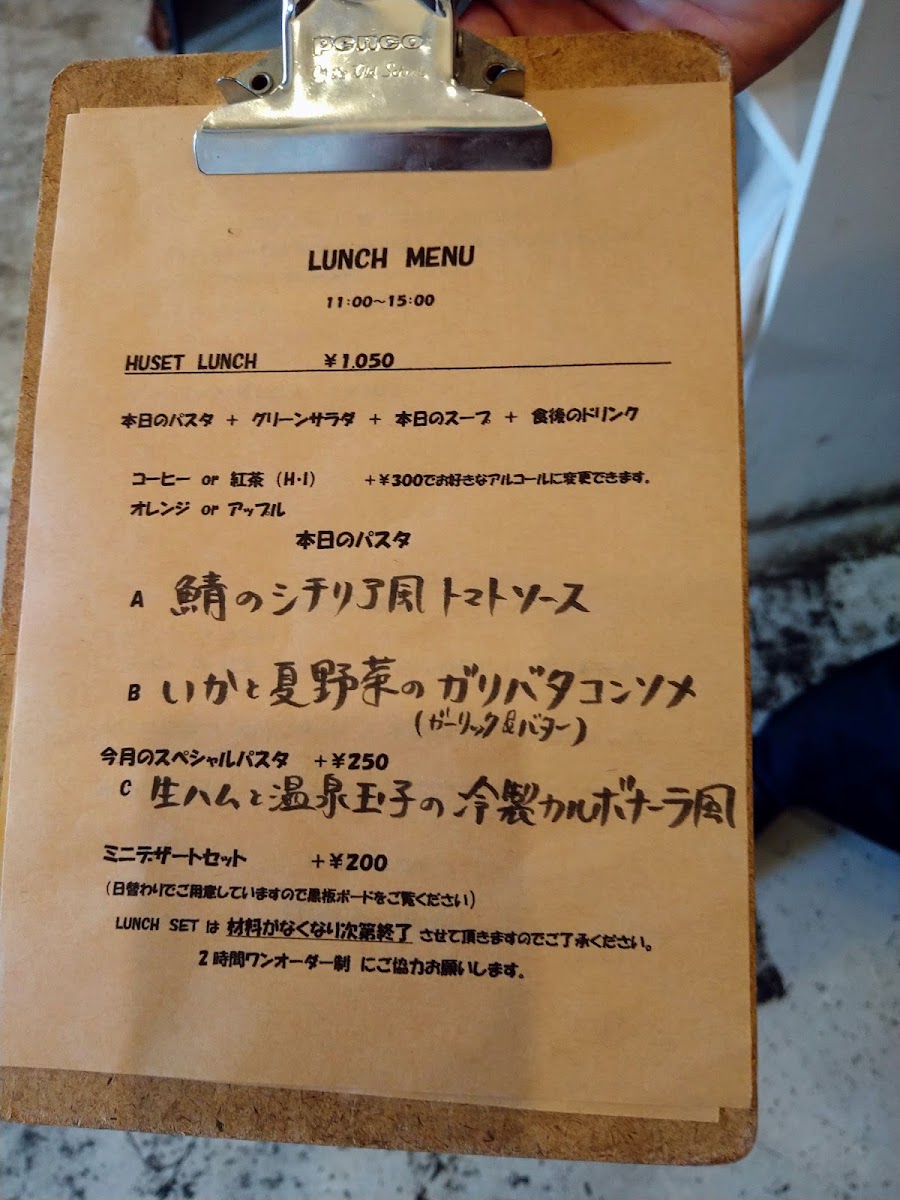 penco
LUNCH MENU
11:00～15:00
HUSET LUNCH ¥1.050
本日のパスタ + グリーンサラダ + 本日のスープ + 食後のドリンク
コーヒー or 紅茶 (H・I) +¥300でお好きなアルコールに変更できます。
オレンジ or アップル
本日のパスタ
A 鯖のシチリア風トマトソース
B いかと夏野菜のガリバタコンソメ
(ガーリック&バター)
今月のスペシャルパスタ +¥250
C 生ハムと温泉玉子の冷製カルボナーラ風
ミニデザートセット +¥200
(日替わりでご用意していますので黒板ボードをご覧ください)
LUNCH SET は 材料がなくなり次第終了 させて頂きますのでご了承ください。
2時間ワンオーダー制 にご協力お願いします。